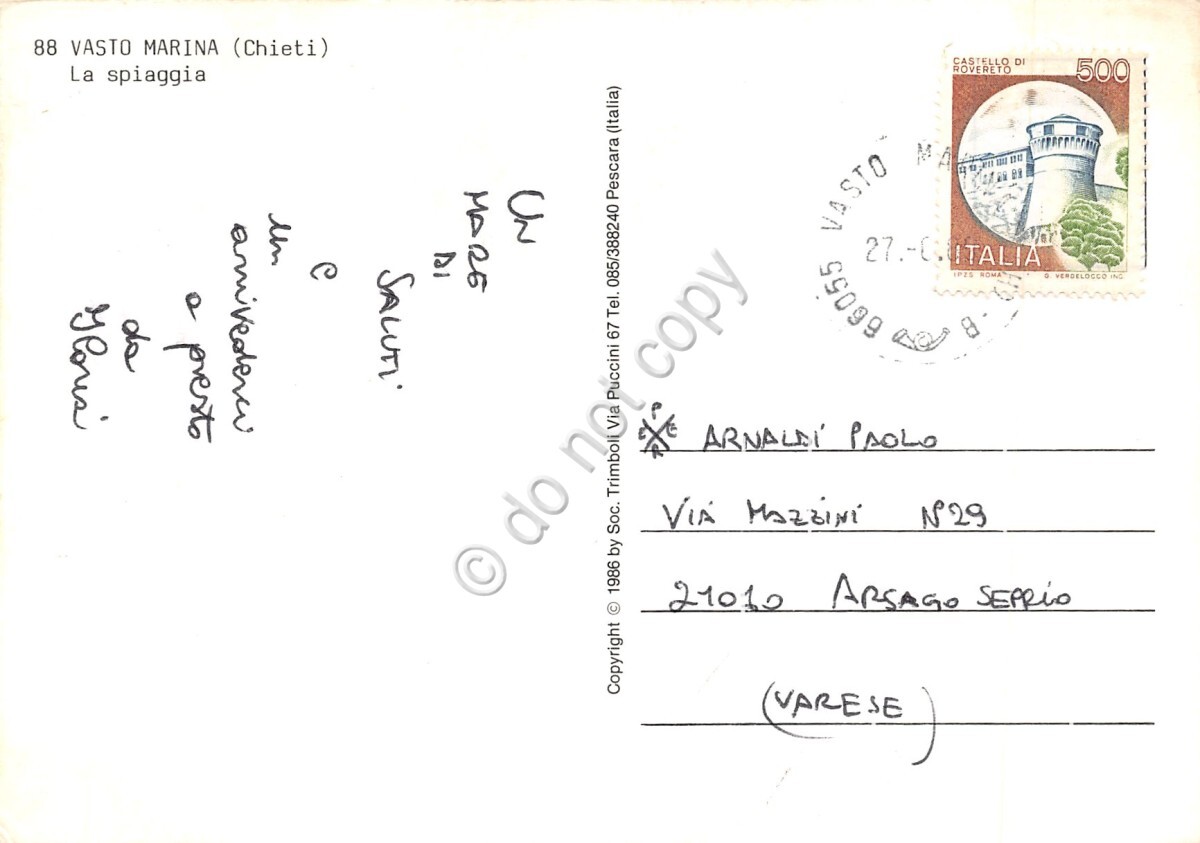 88 VASTO MARINA (Chieti)
La spiaggia
UN
MARE
DI
SALUTI
e
un
arrivederci
a presto
da
Copyright © 1986 by Soc. Trimboli Via Puccini 67 Tel. 085/388240 Pescara (Italia)
CASTELLO DI
ROVERETO
500
ITALIA
I.P.Z.S. ROMA
G. VERDELOCCO INC.
66055 VASTO
27.
ARNALDI PAOLO
VIA MAZZINI N°29
21010 ARSAGO SEPRIO
(VARESE)
© do not copy